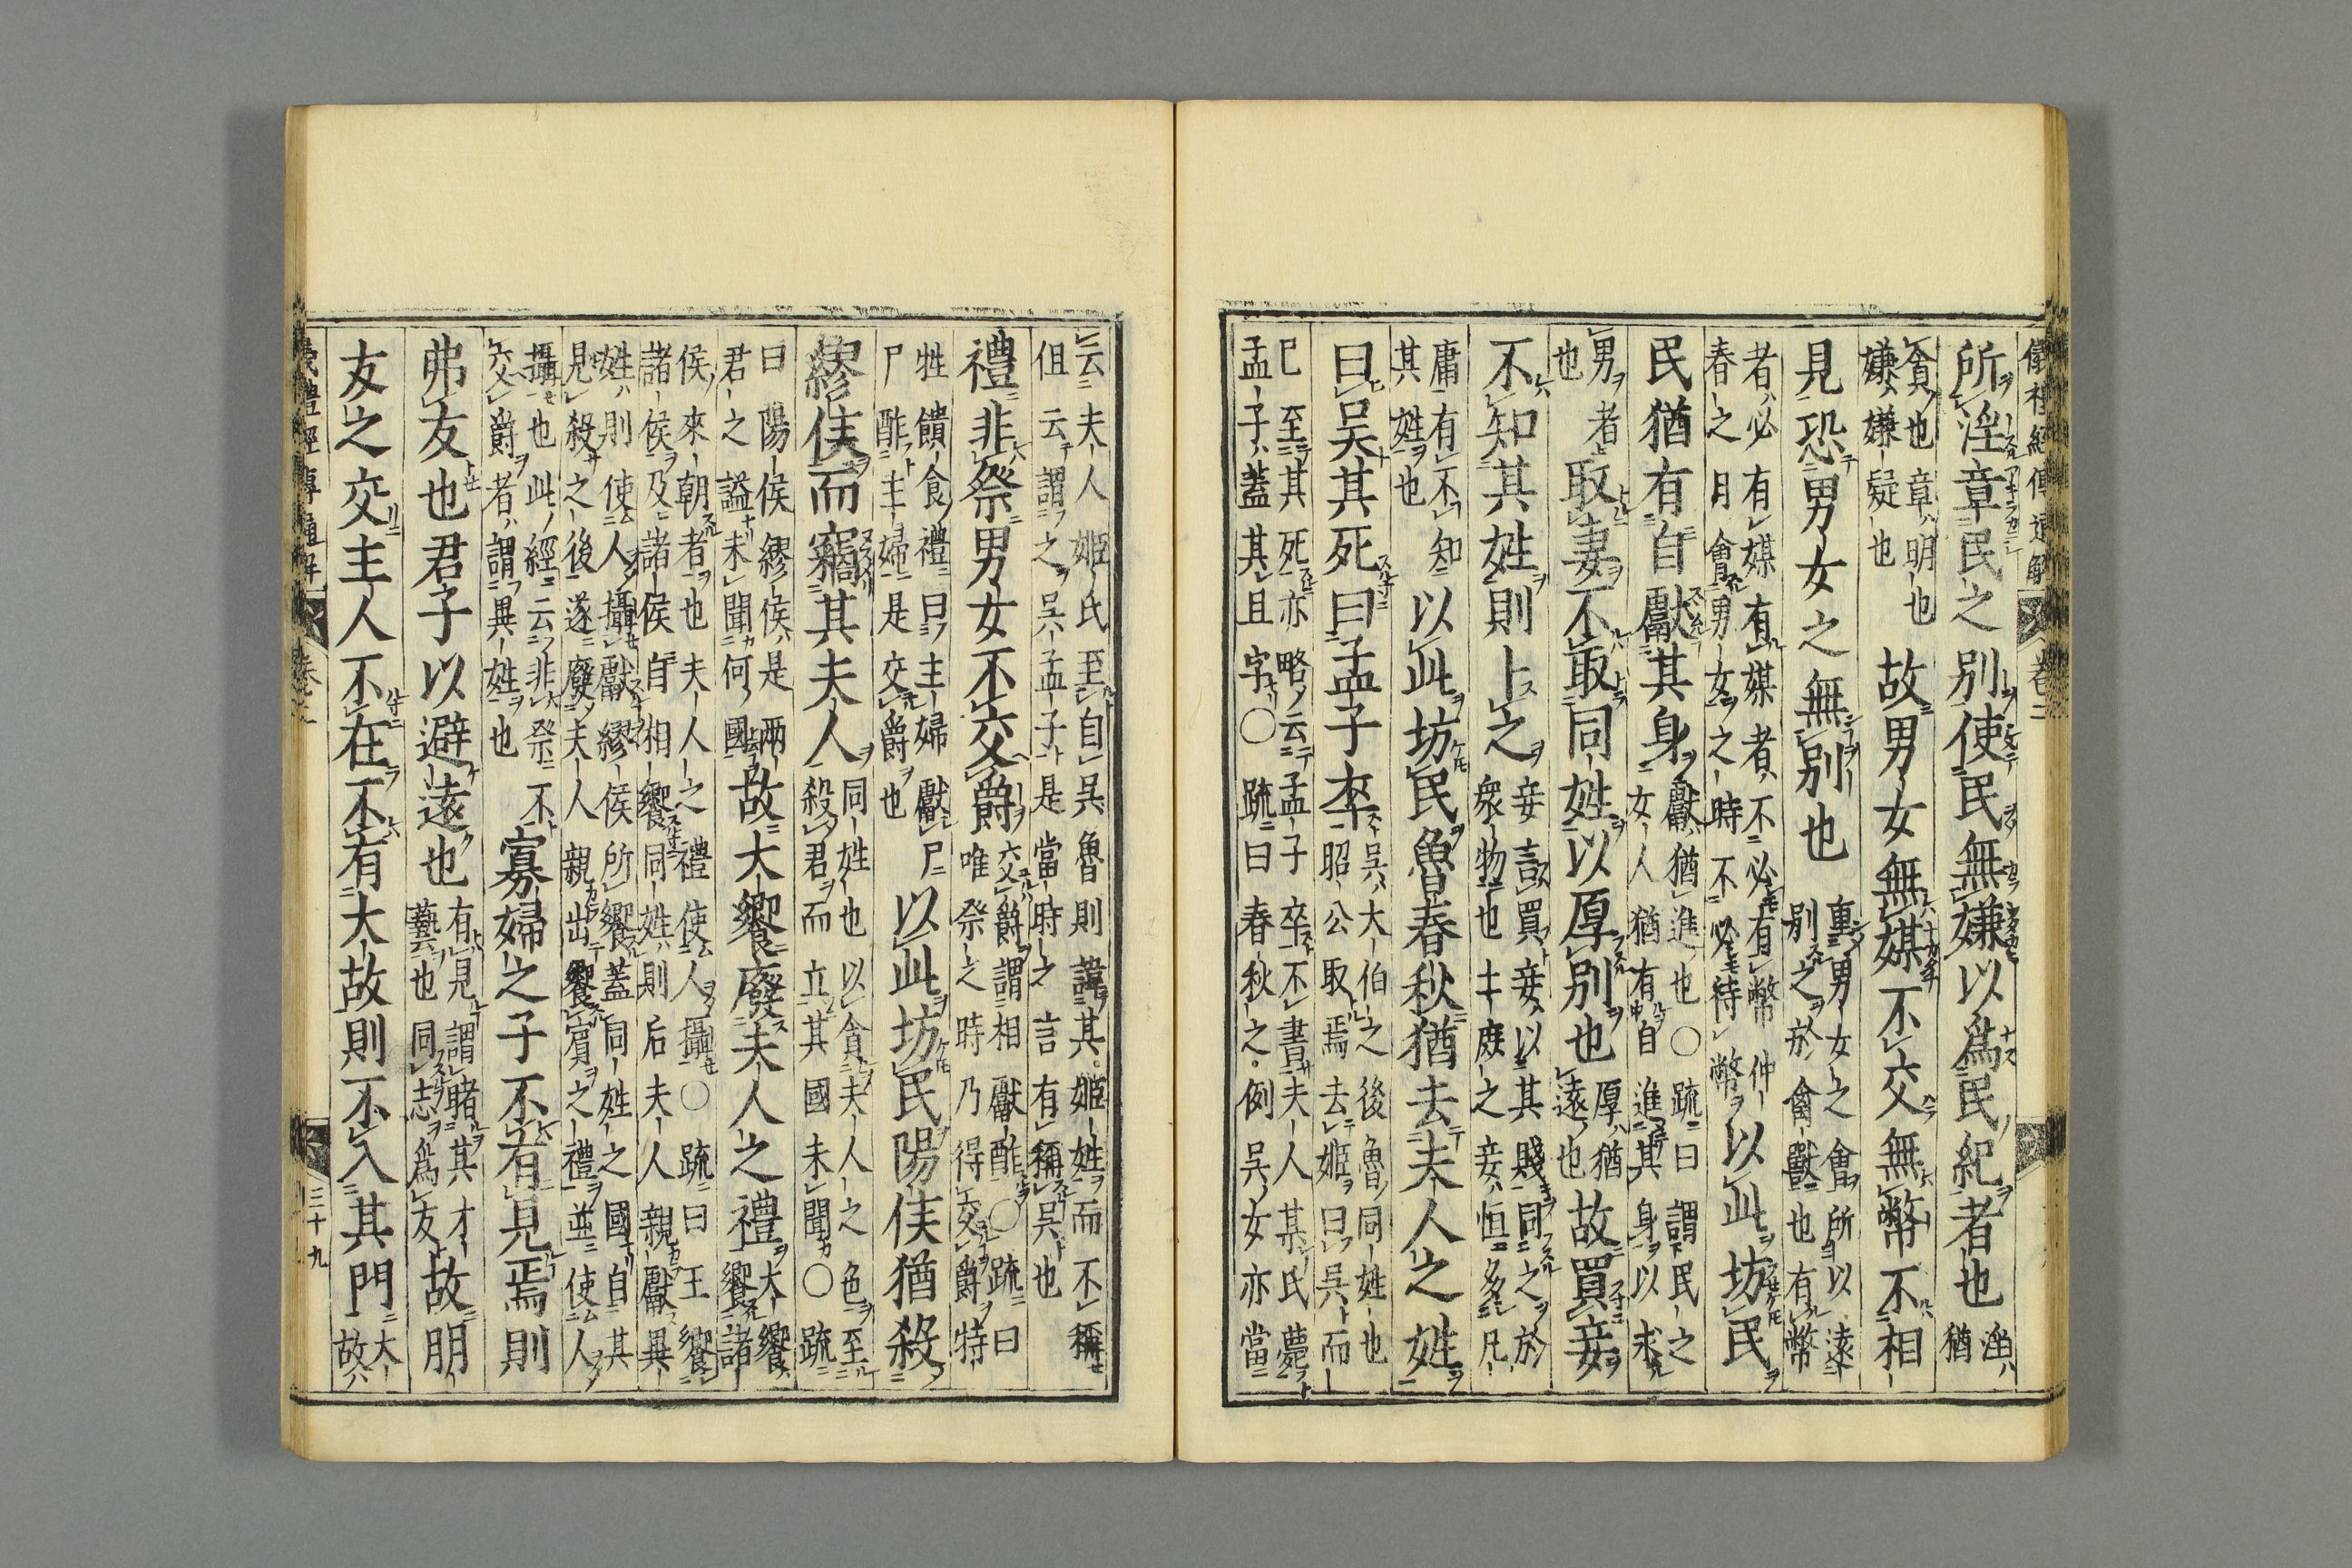 儀禮經傳通解 卷二
所淫章民之别使民無嫌以爲民紀者也 淫猶
貪也章明也嫌嫌疑也 故男女無媒不交無幣不相
見恐男女之無别也 重男女之會所以遠别之於禽獸也有幣
者必有媒有媒者不必有幣仲春之月會男女之時不必待幣 以此坊民
民猶有自獻其身 獻猶進也○疏曰謂民之女人猶有自進其身以求
男者也 取妻不取同姓以厚别也 厚猶遠也 故買妾
不知其姓則卜之 妾言買妾以其賤同之於衆物也士庶之妾恒多凡
庸有不知其姓也 以此坊民魯春秋猶去夫人之姓
曰吳其死曰孟子卒 吳大伯之後魯同姓也昭公取焉去姬曰吳而
已至其死亦略云孟子卒不書夫人某氏薨孟子蓋其且字○疏曰春秋之例吳女亦當
云夫人姬氏至自吳魯則諱其姬姓而不稱但云謂之吳孟子是當時之言有稱吳也
禮非祭男女不交爵 交爵謂相獻酢○疏曰唯祭之時乃得交爵特
牲饋食禮曰主婦獻尸尸酢主婦是交爵也 以此坊民陽侯猶殺
繆侯而竊其夫人 同姓也以貪夫人之色至殺君而立其國未聞○疏
曰陽侯繆侯是兩君之謚未聞何國 故大饗廢夫人之禮 大饗饗諸
侯來朝者也夫人之禮使人攝○疏曰王饗諸侯及諸侯自相饗同姓則后夫人親獻異
姓則使人攝獻繆侯所饗蓋同姓之國自其見殺之後遂廢夫人親出饗賓之禮並使人
攝也此經云非祭不交爵者謂異姓也 寡婦之子不有見焉則
弗友也君子以避遠也 有見謂睹其才藝也同志爲友 故朋
友之交主人不在不有大故則不入其門 大故
儀禮經傳通解 卷二 三十九